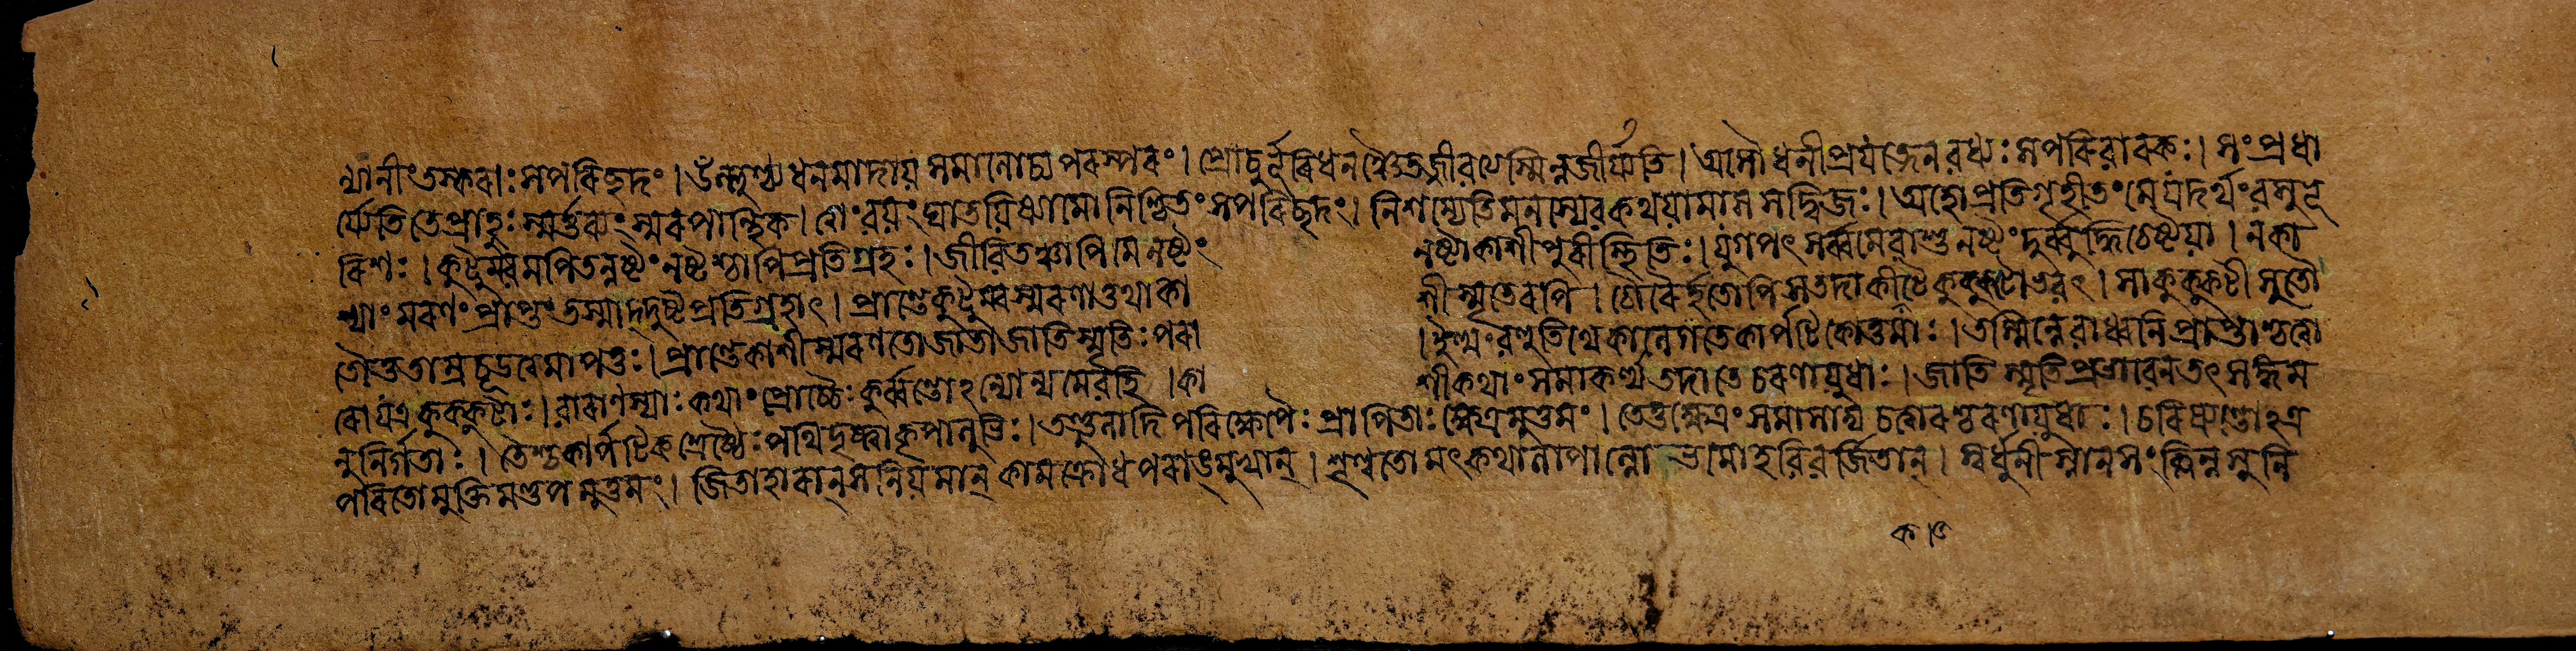 ধ্যানীং তস্করাঃ সপরিচ্ছদং । উল্লুণ্ঠ্য ধনমাদায় সমালোচ্য পরস্পরং । প্রোচুর্ভূরিধনঞ্চৈতজ্জীবত্যস্মিন্নজীর্য্যতি । অসৌ ধনী প্রযত্নেন বধ্যঃ সপরিবারকঃ । সংপ্রধা
র্য্যেতি তে প্রাহুঃ স্মর্ত্তব্যং স্মর পান্থিক । ত্বাং বয়ং ঘাতয়িষ্যামো নিশ্চিতং সপরিচ্ছদং । নিশম্যেতি মনস্যেব কথয়ামাস স দ্বিজঃ । অহো প্রতিগৃহীতং মে যদর্থং বসু ভূ
রিশঃ । কুটুম্বমপি তন্নষ্টং নষ্টশ্চাপি প্রতিগ্রহঃ । জীবিতঞ্চাপি মে নষ্টং নষ্টা কাশীপুরীস্থিতিঃ । যুগপৎ সর্ব্বমেবাশু নষ্টং দুর্ব্বুদ্ধিচেষ্টয়া । ন কা
শ্যাং মরণং প্রাপ্তং তস্মাদ্দুষ্টপ্রতিগ্রহাৎ । প্রান্তে কুটুম্বস্মরণাত্তথা কাশীস্মৃতেরপি । চৌরৈর্হতোপি স তদা কীকটে কুক্কুটোভবৎ । সা কুক্কুটী সুতৌ
তৌ তু তাম্রচূড়ত্বমাপতুঃ । প্রান্তে কাশীস্মরণতো জাতা জাতিস্মৃতিঃ পরা । ইত্থং বহুতিথে কালে গতে কার্পটিকোত্তমাঃ । তস্মিন্নেবাধ্বনি প্রাপ্তাশ্চত্বা
রো যত্র কুক্কুটাঃ । বারাণস্যাঃ কথাং প্রোচ্চৈঃ কুর্ব্বন্তোঽন্যোন্যমেব হি । কাশীকথাং সমাকর্ণ্য তদা তে চরণায়ুধাঃ । জাতিস্মৃতিপ্রভাবেন তৎসঙ্গিন
নু নির্গতাঃ । তৈশ্চ কার্পটিকশ্রেষ্ঠৈঃ পথি দৃষ্ট্বা কৃপালুভিঃ । তণ্ডুলাদিপরিক্ষেপৈঃ প্রাপিতাঃ ক্ষেত্রমুত্তমং । তে তু ক্ষেত্রং সমাসাদ্য চত্বারশ্চরণায়ুধাঃ । চরিষ্যন্তোঽত্র
পরিতো মুক্তিমণ্ডপমুত্তমং । জিতাহারান্ সনিয়মান্ কামক্রোধপরাঙ্মুখান্ । শৃণ্বতো মৎকথালাপান্লোভমোহবিবর্জিতান্ । স্বর্ধুনীস্নানসংক্লিন্নসুনি